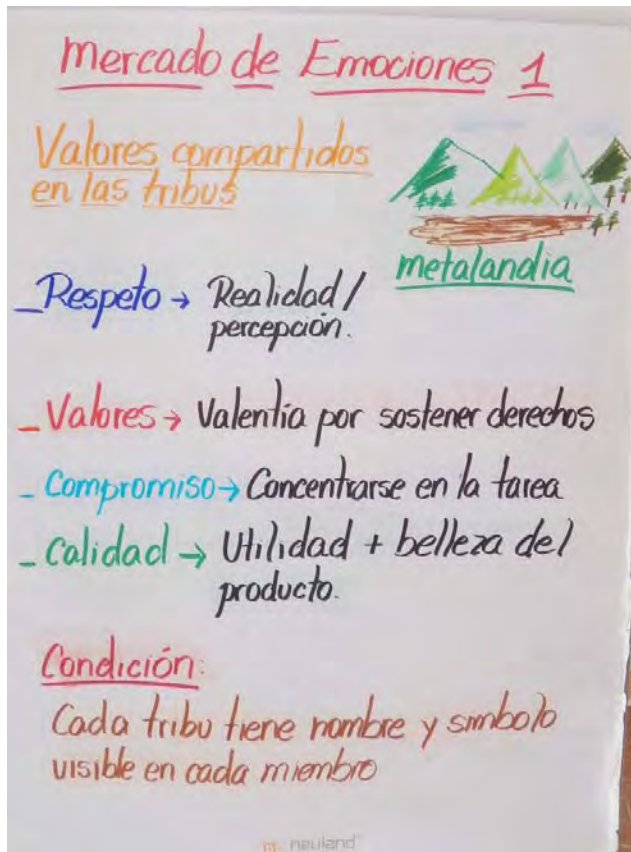 Mercado de Emociones 1
Valores compartidos
en las tribus
metalandia
_Respeto → Realidad/
percepción.
_Valores → Valentía por sostener derechos
_Compromiso → Concentrarse en la tarea
_Calidad → Utilidad + belleza del
producto.
Condición:
Cada tribu tiene nombre y símbolo
visible en cada miembro
neuland